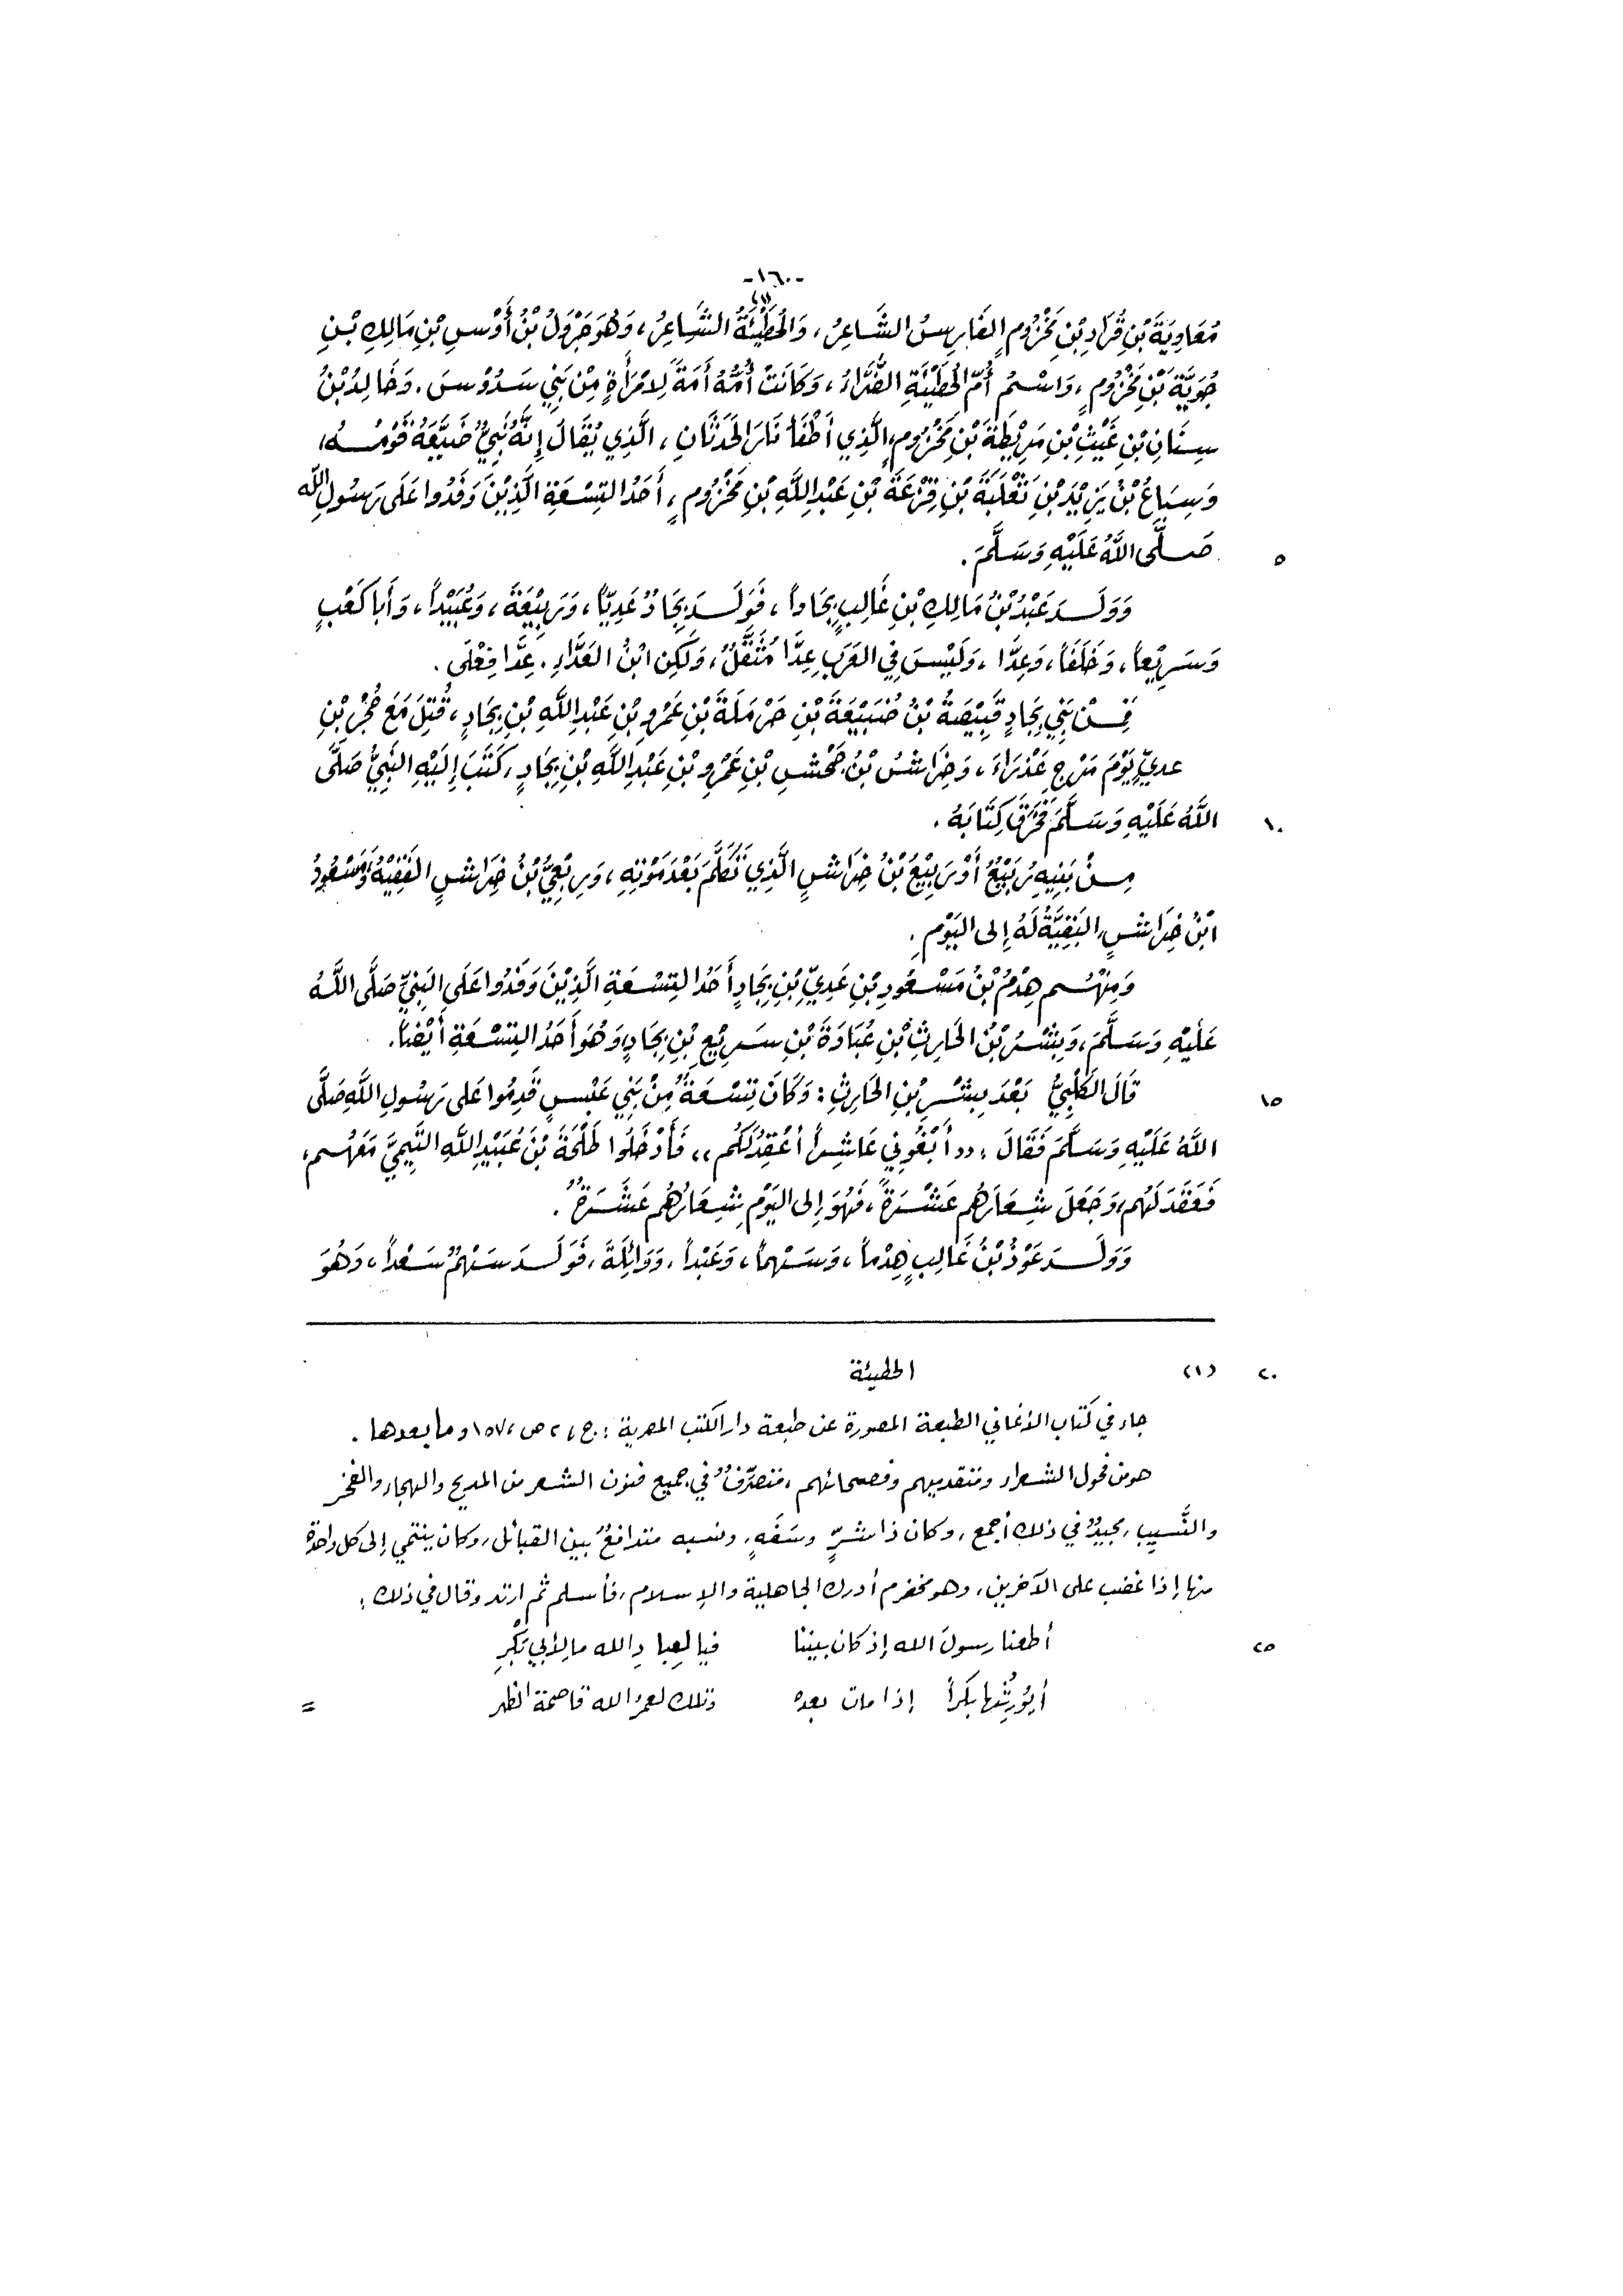 -١٦٠-
مُعَاوِيَةَ بْنِ قُرَادِ بْنِ مَخْزُومٍ الفَارِسُ الشَّاعِرُ، وَالحُطَيْئَةُ (١) الشَّاعِرُ، وَهُوَ جَرْوَلُ بْنُ أَوْسِ بْنِ مَالِكِ بْنِ
جُوَيَّةَ بْنِ مَخْزُومٍ، وَاسْمُ أُمِّ الحُطَيْئَةِ الضَّرَّاءُ، وَكَانَتْ أُمُّهُ أَمَةً لِامْرَأَةٍ مِنْ بَنِي سَدُوسَ. وَخَالِدُ بْنُ
سِنَانِ بْنِ غَيْثِ بْنِ مَرِيْطَةَ بْنِ مَخْزُومٍ، الَّذِي أَطْفَأَ نَارَ الحَدَثَانِ، الَّذِي يُقَالُ إِنَّهُ نَبِيٌّ ضَيَّعَهُ قَوْمُهُ،
وَسِبَاعُ بْنُ يَزِيْدَ بْنِ ثَعْلَبَةَ بْنِ قِزْعَةَ بْنِ عَبْدِ اللَّهِ بْنِ مَخْزُومٍ، أَحَدُ التِسْعَةِ الَّذِيْنَ وَفَدُوا عَلَى رَسُولِ اللَّهِ
صَلَّى اللَّهُ عَلَيْهِ وَسَلَّمَ. ٥
وَوَلَدَ عَبْدُ بْنُ مَالِكِ بْنِ غَالِبٍ بِجَاداً، فَوَلَدَ بِجَادٌ عَدِيّاً، وَرَبِيْعَةَ، وَعُبَيْداً، وَأَبَا كَعْبٍ
وَسَرِيْعاً، وَخَلَفاً، وَعِدَّا، وَلَيْسَ فِي العَرَبِ عِدَّا مُثَقَّلٌ، وَلَكِنِ ابْنُ العَدَّاءِ. عِدَّا فِعْلَى.
فَمِنْ بَنِي بِجَادٍ قَبِيْصَةُ بْنُ ضُبَيْعَةَ بْنِ حَرْمَلَةَ بْنِ عَمْرِو بْنِ عَبْدِ اللَّهِ بْنِ بِجَادٍ، قُتِلَ مَعَ حُجْرِ بْنِ
عَدِيٍّ يَوْمَ مَرْجِ عَذْرَاءَ، وَخِرَاشُ بْنُ جَحْشِ بْنِ عَمْرِو بْنِ عَبْدِ اللَّهِ بْنِ بِجَادٍ، كَتَبَ إِلَيْهِ النَّبِيُّ صَلَّى
اللَّهُ عَلَيْهِ وَسَلَّمَ فَخَرَّقَ كِتَابَهُ. ١٠
مِنْ بَنِيهِ رُبَيْعُ أَوْ رَبِيْعُ بْنُ خِرَاشٍ الَّذِي تَكَلَّمَ بَعْدَ مَوْتِهِ، وَرِبْعِيُّ بْنُ خِرَاشٍ الفَقِيْهُ، وَمَسْعُودُ
ابْنُ خِرَاشٍ، البَقِيَّةُ لَهُ إِلى اليَوْمِ.
وَمِنْهُم هِدْمُ بْنُ مَسْعُودِ بْنِ عَدِيِّ بْنِ بِجَادٍ أَحَدُ التِسْعَةِ الَّذِيْنَ وَفَدُوا عَلَى النَبِيِّ صَلَّى اللَّهُ
عَلَيْهِ وَسَلَّمَ، وَبِشْرُ بْنُ الحَارِثِ بْنِ عُبَادَةَ بْنِ سَرِيْعِ بْنِ بِجَادٍ، وَهُوَ أَحَدُ التِسْعَةِ أَيْضاً.
قَالَ الكَلْبِيُّ بَعْدَ بِشْرِ بْنِ الحَارِثِ: وَكَانَ تِسْعَةٌ مِنْ بَنِي عَبْسٍ قَدِمُوا عَلى رَسُولِ اللَّهِ صَلَّى ١٥
اللَّهُ عَلَيْهِ وَسَلَّمَ فَقَالَ: «أُبْغُونِي عَاشِراً أَعْقِدْ لَكُم»، فَأَدْخَلُوا طَلْحَةَ بْنَ عُبَيْدِ اللَّهِ التَّيْمِيَّ مَعَهُم،
فَعَقَدَ لَهُم، وَجَعَلَ شِعَارَهُم عَشَرَةً، فَهُوَ إِلى اليَوْمِ شِعَارُهُم عَشَرَةٌ.
وَوَلَدَ عَوْذُ بْنُ غَالِبٍ هِدْماً، وَسَهْماً، وَعَبْداً، وَوَائِلَةَ، فَوَلَدَ سَهْمٌ سَعْداً، وَهُوَ
(١) الحطيئة ٢٠
جاء في كتاب الأغاني الطبعة المصورة عن طبعة دار الكتب المصرية: ج ٢، ص ١٥٧، وما بعدها.
هو من فحول الشعراء ومتقدميهم وفصحائهم، متصرّفٌ في جميع فنون الشعر من المديح والهجاء والفخر
والنَّسيب، مجيدٌ في ذلك أجمع، وكان ذا شرٍّ وسَفَهٍ، ونسبه متدافعٌ بين القبائل، وكان ينتمي إلى كل واحدة
منها إذا غضب على الآخرين، وهو مخضرم أدرك الجاهلية والإسلام، فأسلم ثم ارتد وقال في ذلك:
أطعنا رسولَ الله إذ كان بيننا فيا لعبادِ الله ما لأبي بَكْرِ ٢٥
أيُورِثُها بكراً إذا مات بعده وتلك لعمرُ الله قاصمة الظهر =